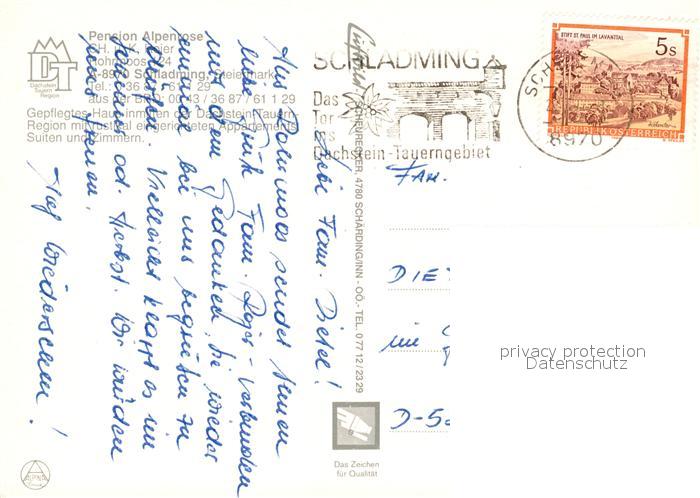 Pension Alpenrose
A-8970 Schladming, Steiermark
aus der BRD: 00 43 / 36 87 / 61 1 29
Gepflegtes Haus inmitten der Dachstein Tauern
Region mit rustikal eingerichteten Appartements,
Suiten und Zimmern.
DT
Dachstein
Tauern
Region
SCHLADMING
Das
Tor
des
Dachstein-Tauerngebiet
8970
STIFT ST. PAUL IM LAVANTTAL
5s
REPUBLIK ÖSTERREICH
Liebe Fam. Dietel!
Aus Rohrmoos sendet Ihnen
liebe Grüße Fam.
verbunden
mit dem Gedanken, Sie wieder
einmal bei uns begrüßen zu
dürfen. Vielleicht klappt es im
od. Herbst. Wir würden
uns freuen.
Auf Wiedersehen!
SCHEURECKER, 4780 SCHÄRDING/INN - OÖ. - TEL. 0 77 12 / 23 29
FAM.
DIE
D-5
privacy protection
Datenschutz
Das Zeichen
für Qualität
ALPINA